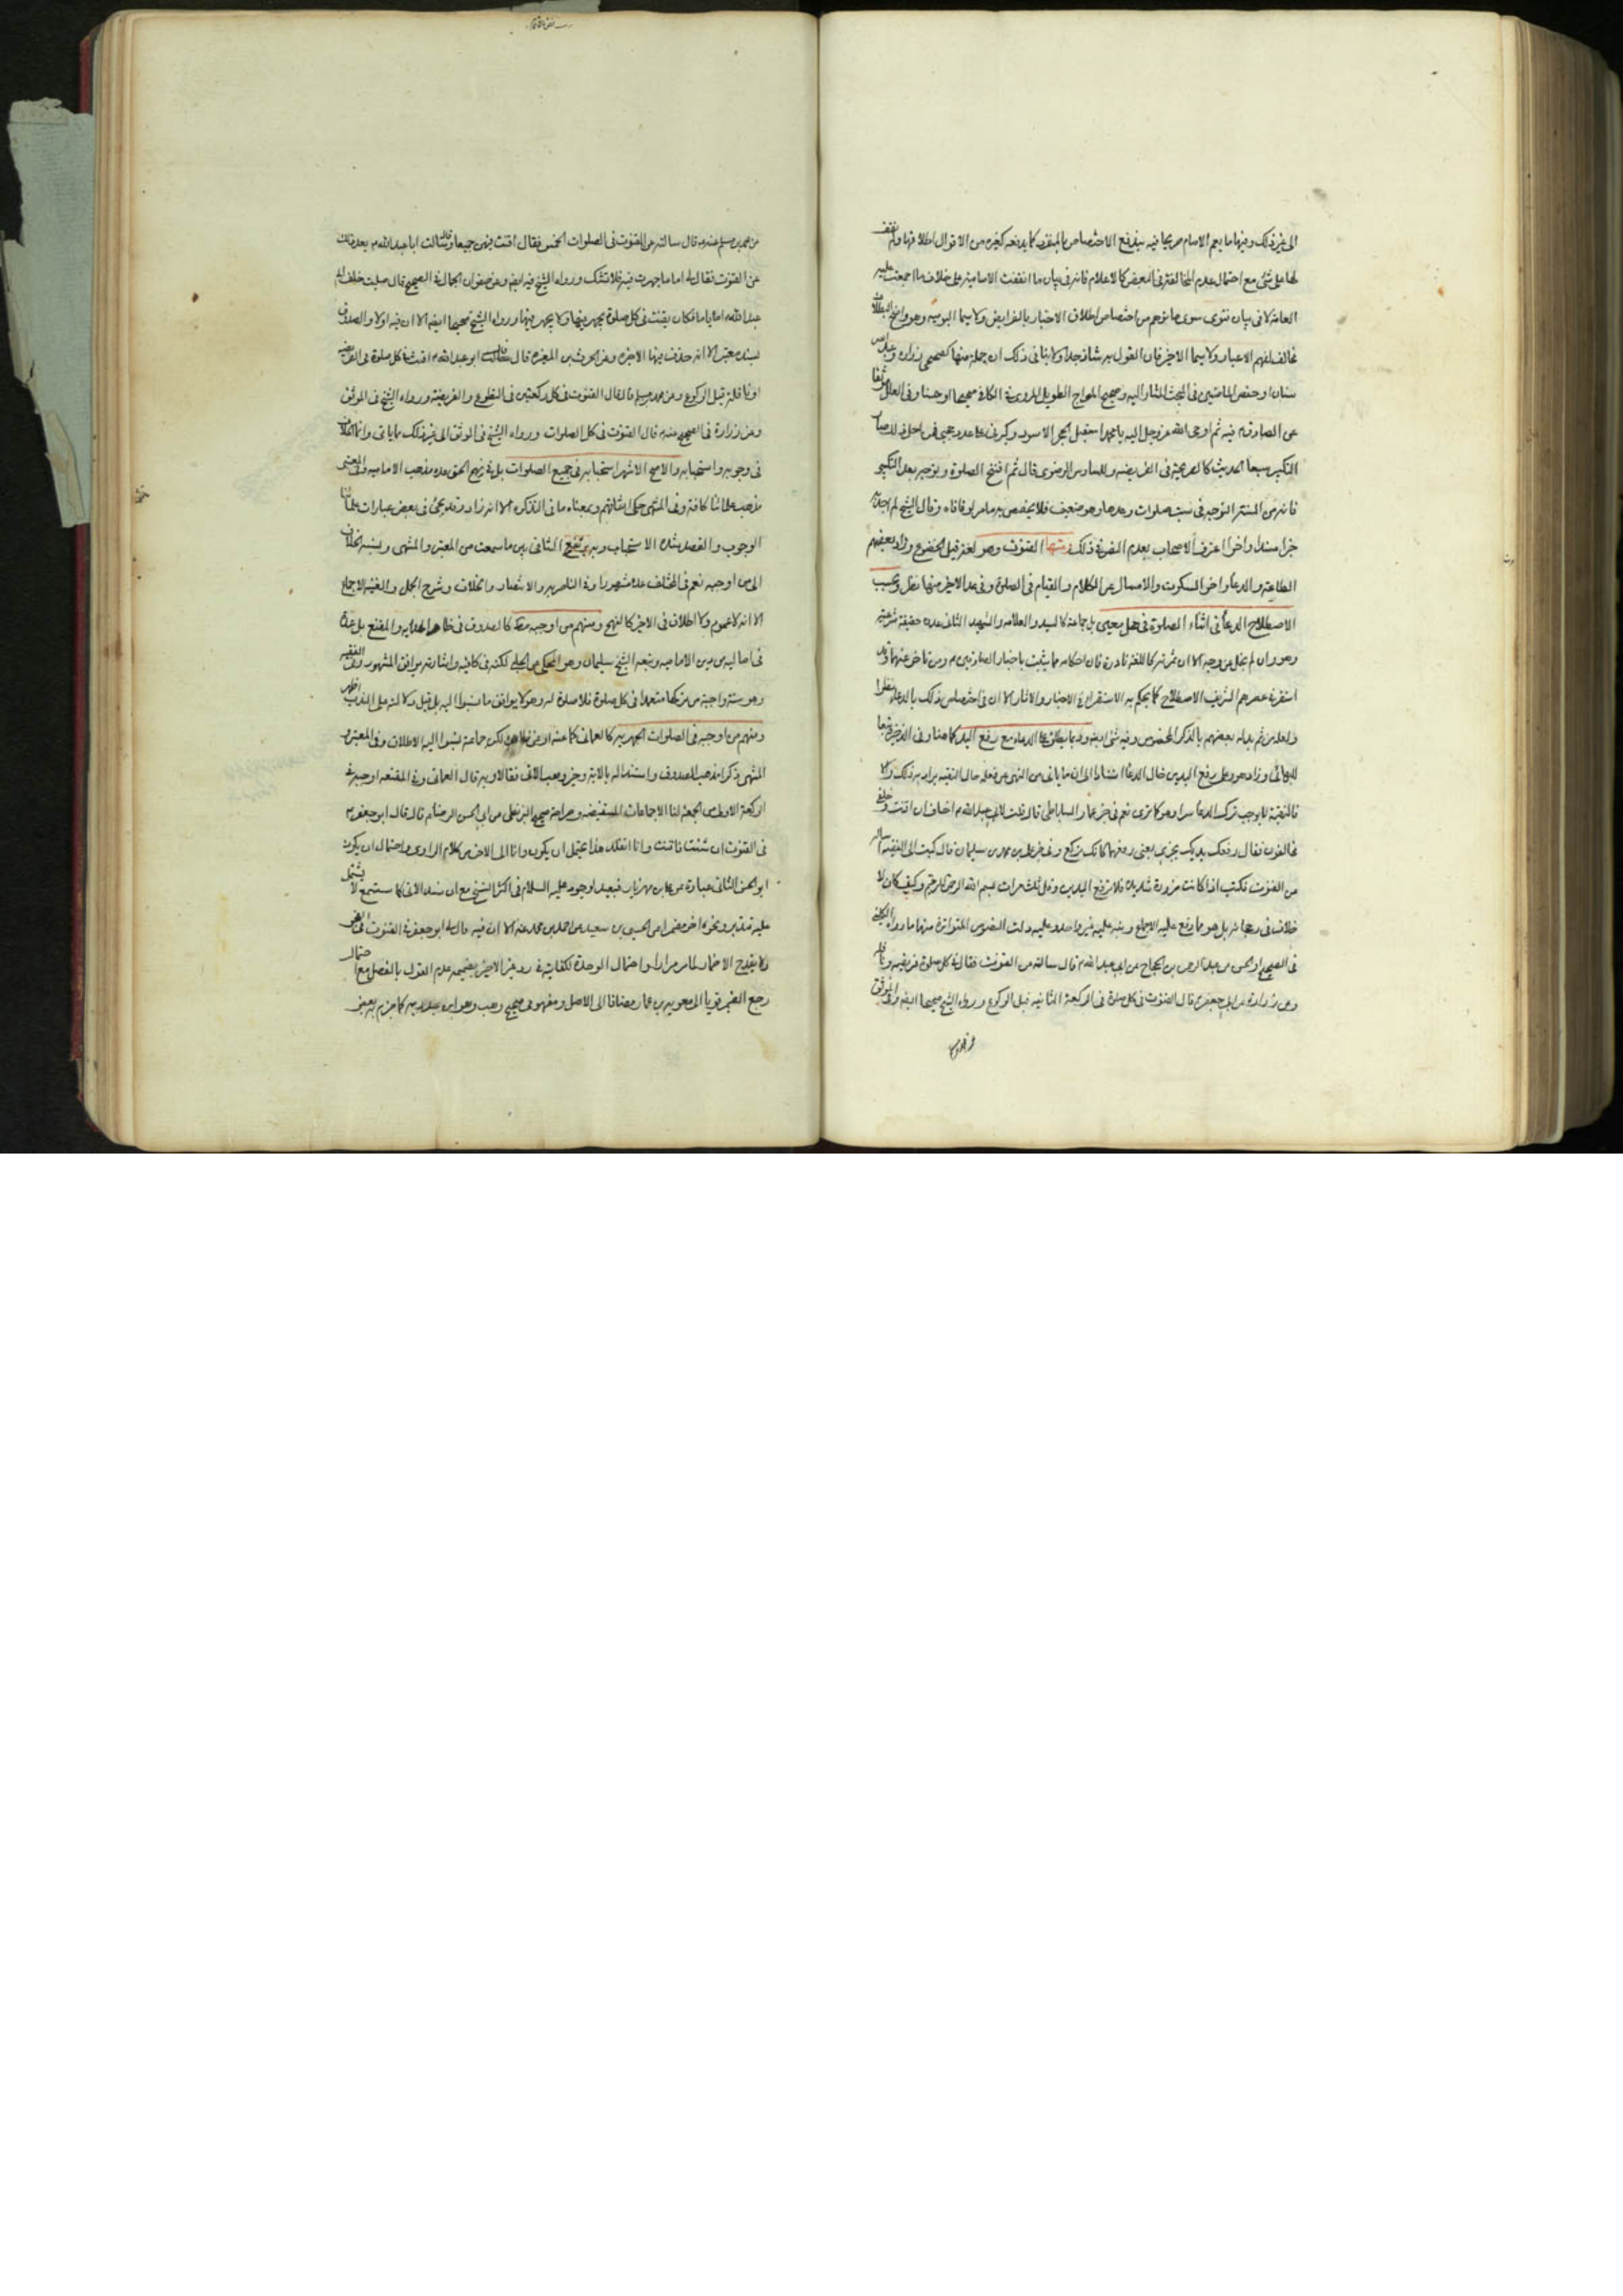 الى غير ذلك وفيها ما يعم الامام صريحا فيه يندفع الاختصاص بالمنفرد كما يدفعه كغيره من الاقوال اطلاقها ولم نقف
لها على شئ مع احتمال عدم المخالفة في البعض كالاعلام فانه في بيان ما انفقت الامامية على خلاف ما اجمعت عليه
العامة لا في بيان فتوى سوى ما توهم من اختصاص اطلاق الاخبار بالفرايض ولا سيما اليومية وهو واضح البطلان
مخالف لفهم الاعيان ولا سيما الاخير فان القول به شاذ جدا ولا ينافى ذلك ان جملة منها كصحيحى زرارة وعبد الله بن
سنان او حفص الماضيين في المبحث المشار اليه وصحيح المعراج الطويل المروى في الكافي صحيحا او حسنا وفى العلل موثقا
عن الصادق فيه ثم اوحى الله عز وجل اليه يا محمد استقبل الحجر الاسود وكبرنى على عدد حجبى فمن اجل ذلك صار
التكبير سبعا الحديث كالصريحة في الفريضة وللسادس الرضوى قال ثم افتتح الصلوة وتوجه بعد التكبير
فانه من السنة التوجه في ست صلوات وعدها وهو ضعيف فلا يخصص به ما مر او فاقاه وقال الشيخ لم اجد به
خبرا مسندا واخر اعترف الاصحاب بعدم النص في ذلك ومنها القنوت وهو لغة قيل الخضوع وزاد بعضهم
الطاعة والدعاء واخر السكوت والامساك عن الكلام والقيام في الصلوة وفى عد الاخير منها نظر وبحسب
الاصطلاح الدعاء في اثناء الصلوة في محل معين بل جماعة كالسيد والعلامة والشهيد الثاني عده حقيقة شرعية
وهو وان لم يخل عن وجه الا ان ثمرته كاللغة نادرة فان احكامه مما يثبت باخبار الصادقين ومن تاخر عنهما وقد
استقر في عصرهم الشريف الاصطلاح كما يحكم به الاستقراء في الاخبار والاثار الا ان في اختصاص ذلك بالدعاء نظرا
ولعله من ثم بدله بعضهم بالذكر المخصوص وفيه شئ ايضه وربما يطلق على الدعاء مع رفع اليد كما هنا وفى الذخيرة تبعا
للبهائى وزاد هو وعلى رفع اليدين خال الدعاء استنادا الى ان ما ياتى من النهى عن فعله حال التقية يراد به ذلك والا
فالتقية لا يوجب ترك الدعاء سرا وهو كما ترى نعم في خبر عمار الساباطى قال قلت لابى عبد الله م اخاف ان اقنت وخلفى
مخالفون فقال رفعك يديك يجزى يعنى رفعهما كانك تركع وفى خبر على بن محمد بن سليمان قال كتبت الى الفقيه اسأله
عن القنوت فكتب اذا كانت ضرورة شديدة فلا ترفع اليدين وقل ثلث مرات بسم الله الرحمن الرحيم وكيف كان لا
خلاف في رجحانه بل هو مما وقع عليه الاجماع ونبه عليه غير واحد وعليه دلت النصوص المتواترة منها ما رواه الكلينى
في الصحيح او الحسن عن عبد الرحمن بن الحجاج عن ابى عبد الله م قال سالته عن القنوت فقال في كل صلوة فريضة ونافلة
وعن زرارة عن ابى جعفر م قال القنوت في كل صلوة في الركعة الثانية قبل الركوع ورواه الشيخ صحيحا ايضه وفى الموثق
عن محمد بن مسلم عنه م قال سالته عن القنوت في الصلوات الخمس فقال اقنت فيهن جميعا قال وسالت ابا عبد الله م بعد ذلك
عن القنوت فقال لى اما ما جهرت فيه فلا تشك ورواه الشيخ فيه ايضه وعن صفوان الجمال في الصحيح قال صليت خلف ابى
عبد الله اياما فكان يقنت في كل صلوة يجهر فيها ولا يجهر فيها ورواه الشيخ صحيحا ايضه الا ان فيه اولا والصدوق
بسند معتبر الا انه حذف فيها الاخيرة وعن الحرث بن المغيرة قال قال ابو عبد الله م اقنت في كل صلوة في الفريضة
او نافلة قبل الركوع وعن محمد بن مسلم قال قال القنوت في كل ركعتين في التطوع والفريضة ورواه الشيخ في الموثق
وعن زرارة في الصحيح عنه م قال القنوت في كل الصلوات ورواه الشيخ في الموثق الى غير ذلك مما ياتى وانما الخلاف
في وجوبه واستحبابه والاصح الاشهر استحبابه في جميع الصلوات بل في نهج الحق عده مذهب الامامية وفى المعتبر
مذهب علمائنا كافة وفى المنتهى حكى اتفاقهم وبمعناه ما في التذكرة الا انه زاد وقد يجئ في بعض عبارات علمائنا
الوجوب والقصد شدة الاستحباب وبه يرتفع التنافى بين ما سمعت من المعتبر والمنتهى ونسبة الخلاف
الى من اوجبه نعم في المختلف عده مشهورا وفى الناصرية والانتصار والخلاف وشرح الجمل والغنية الاجماع
الا انه لا عموم ولا اطلاق في الاخير كالنهج ومنهم من اوجبه مطلقا كالصدوق في ظاهر الهداية والمقنع بل عده
في اماليه من دين الامامية وتبعه الشيخ سليمان وهو المحكى عن الحلبى لكنه في كافيه واشارته يوافق المشهور وفى الفقيه
وهو سنة واجبة من تركها متعمدا في كل صلوة فلا صلوة له وهو لا يوافق ما نسبوا اليه بل قيل دلالته على الندب اظهر
ومنهم من اوجبه في الصلوات الجهرية كالعمانى كما عنه او عن ظاهره لكن جماعة نسبوا اليه الاطلاق وفى المعتبر و
المنتهى ذكرا مذهب الصدوق واستدلاله بالاية وخبر وهب الاتى فقالا وبه قال العمانى وفى المقنعة اوجبه في
الركعة الاولى من الجمعة لنا الاجماعات المستفيضة وصراحة صحيح البزنطى عن ابى الحسن الرضا م قال قال ابو جعفر م
في القنوت ان شئت فاقنت وانا اتقلد هذا يحتمل ان يكون وانا الى الاخر من كلام الراوى واحتمال ان يكون
ابو الحسن الثانى عبارة عن على بن مهزيار فبعيد لوجود عليه السلام في اكثر النسخ مع ان سنده الاتى كما ستسمع لا يشتمل
عليه فتدبر ونحوه اخر مضمرا عن الحسين بن سعيد عن احمد بن محمد عنه الا ان فيه قال لى ابو جعفر م في القنوت في الفجر
ولا يقدح الاضمار لما مر مرارا واحتمال الوحدة لكفايته في رد غير الاخير بضميمة عدم القول بالفصل مع احتمال
رجع الضمير قويا الى معوية بن عمار مضافا الى الاصل ومفهومى صحيح وهب وهو ابن عبد ربه كما جزم به بعض